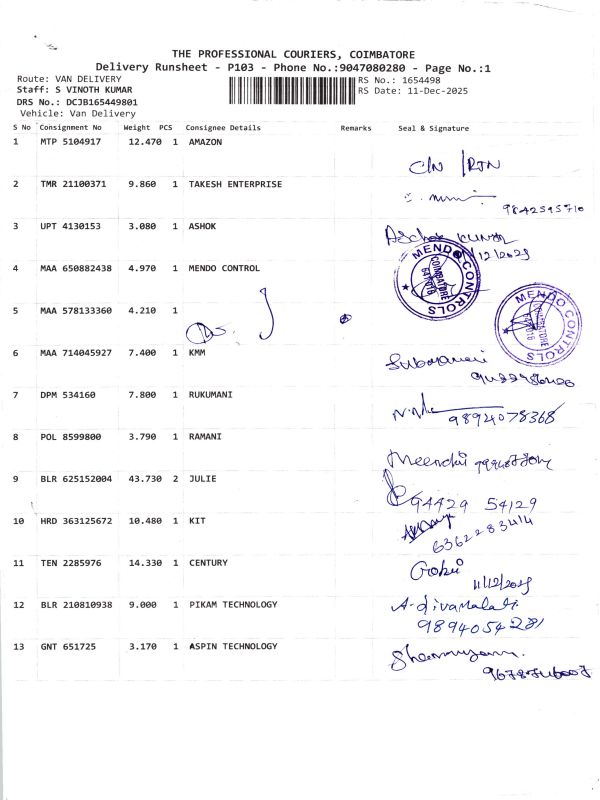 THE PROFESSIONAL COURIERS, COIMBATORE
Delivery Runsheet - P103 - Phone No.:9047080280 - Page No.:1
Route: VAN DELIVERY
RS No.: 1654498
Staff: S VINOTH KUMAR
RS Date: 11-Dec-2025
DRS No.: DCJB165449801
Vehicle: Van Delivery
S No Consignment No Weight PCS Consignee Details Remarks Seal & Signature
1 MTP 5104917 12.470 1 AMAZON
C/N /RTN
2 TMR 21100371 9.860 1 TAKESH ENTERPRISE
9842595710
3 UPT 4130153 3.080 1 ASHOK
Ashok Kumar
11/12/2025
4 MAA 650882438 4.970 1 MENDO CONTROL
MENDO CONTROLS
COIMBATORE
641016
5 MAA 578133360 4.210 1
MENDO CONTROLS
COIMBATORE
641016
6 MAA 714045927 7.400 1 KMM
7 DPM 534160 7.800 1 RUKUMANI
9894078368
8 POL 8599800 3.790 1 RAMANI
Meenchi
9 BLR 625152004 43.730 2 JULIE
94429 54129
10 HRD 363125672 10.480 1 KIT
6362283414
11 TEN 2285976 14.330 1 CENTURY
Gokul
11/12/2025
12 BLR 210810938 9.000 1 PIKAM TECHNOLOGY
A-divamalati
9894054281
13 GNT 651725 3.170 1 ASPIN TECHNOLOGY